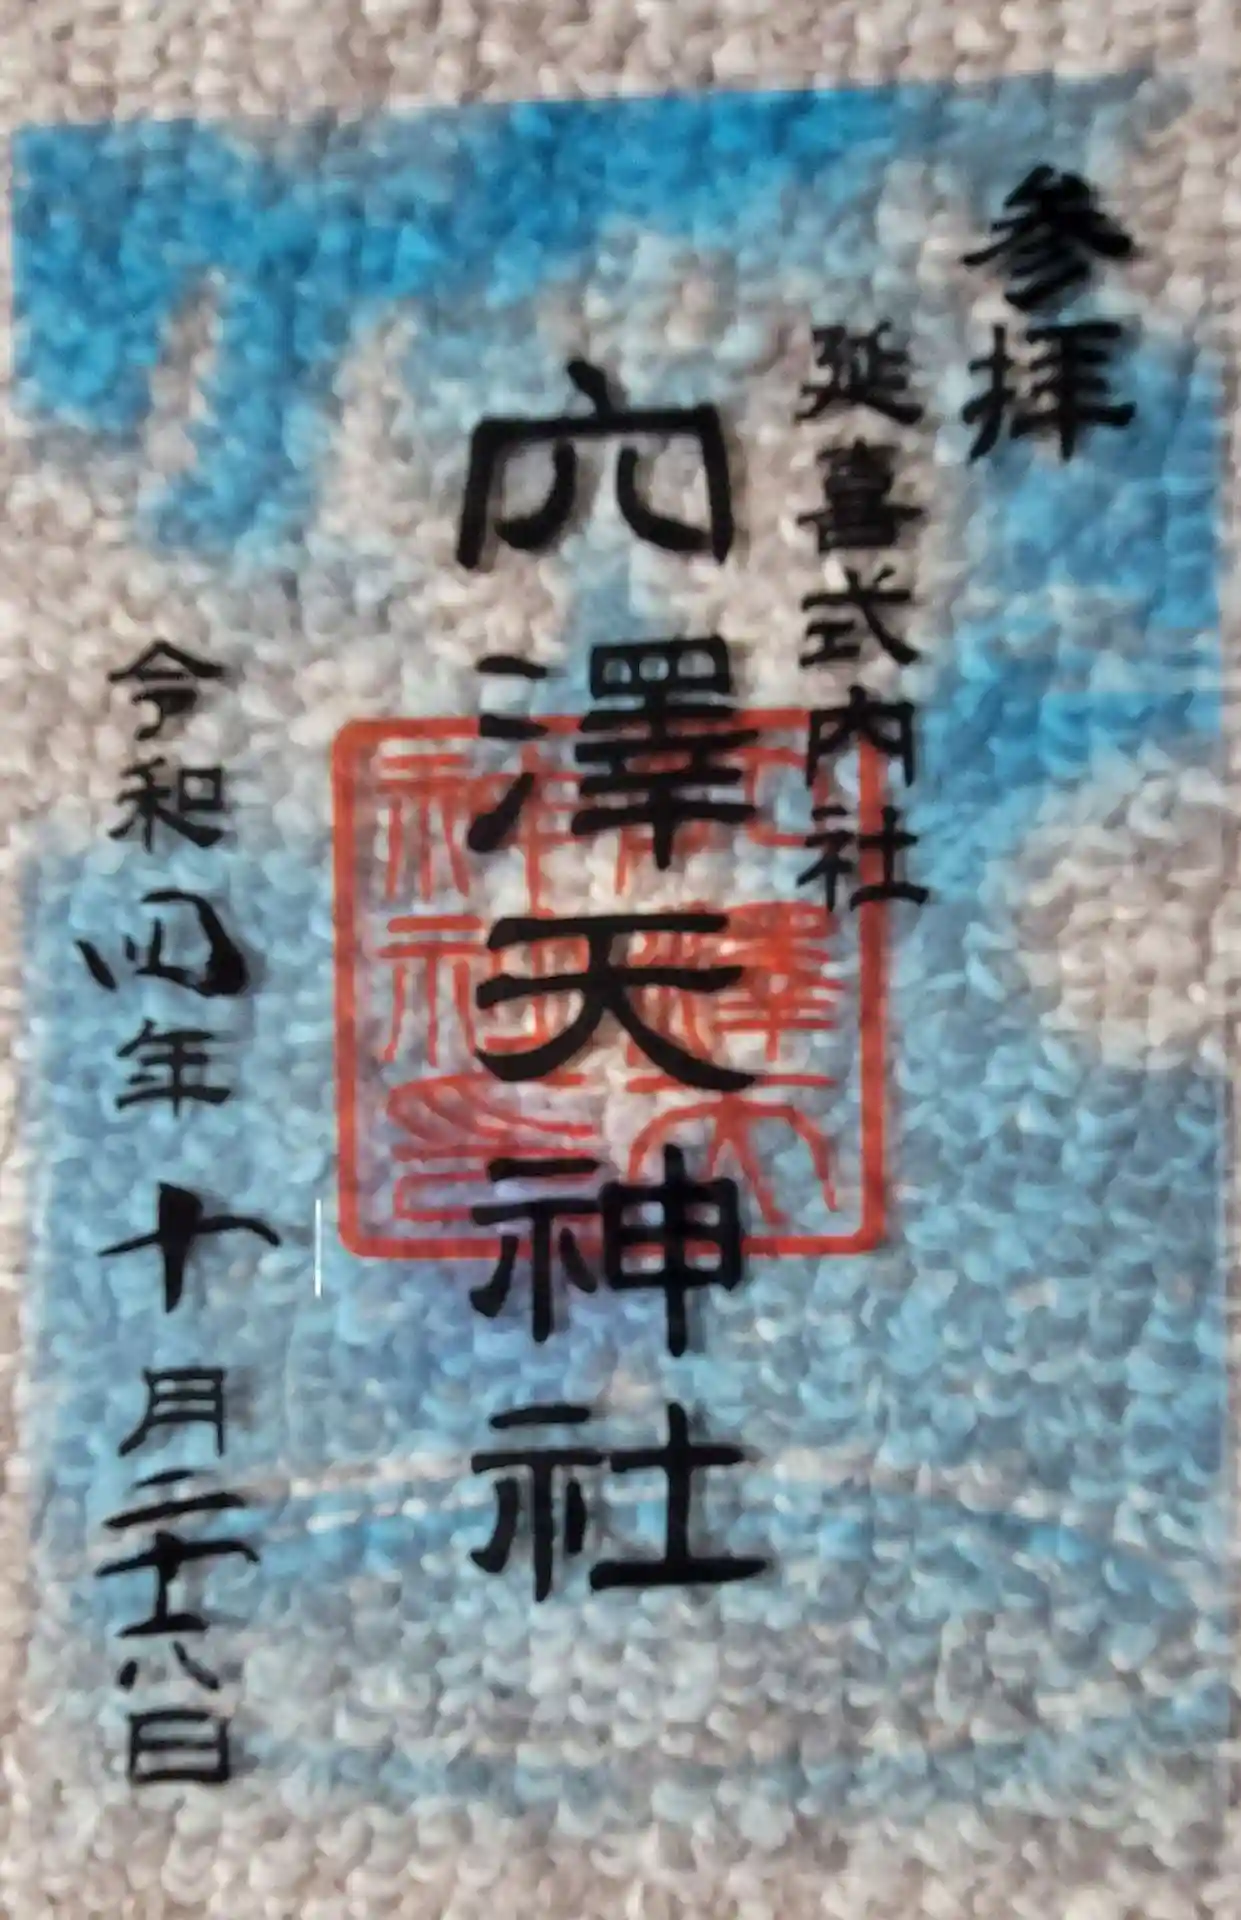 参拝
延喜式内社
穴澤天神社
穴澤天
神社印
令和四年十月二十六日